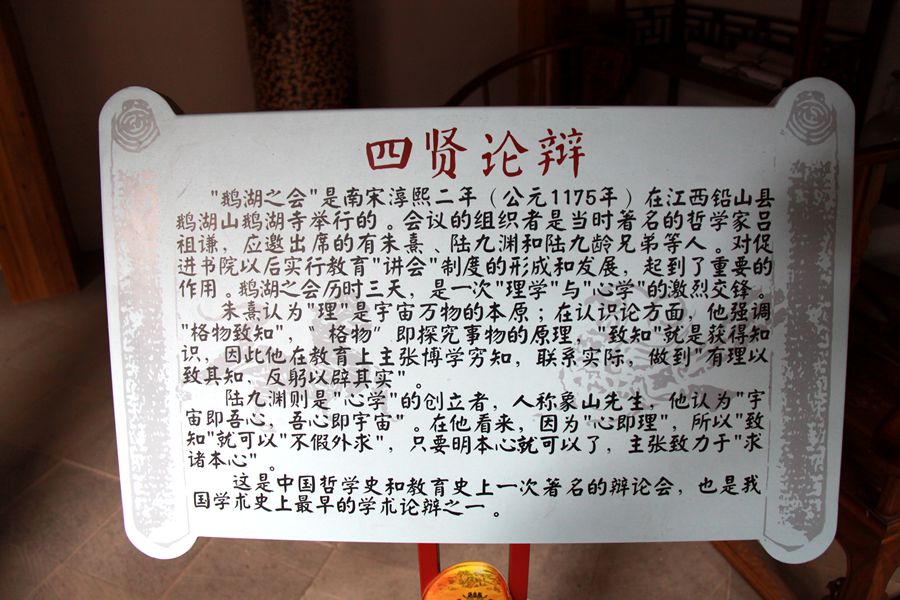 四贤论辩
"鹅湖之会"是南宋淳熙二年（公元1175年）在江西铅山县
鹅湖山鹅湖寺举行的。会议的组织者是当时著名的哲学家吕
祖谦，应邀出席的有朱熹、陆九渊和陆九龄兄弟等人。对促
进书院以后实行教育"讲会"制度的形成和发展，起到了重要的
作用。鹅湖之会历时三天，是一次"理学"与"心学"的激烈交锋。
朱熹认为"理"是宇宙万物的本原；在认识论方面，他强调
"格物致知"，"格物"即探究事物的原理，"致知"就是获得知
识，因此他在教育上主张博学穷知，联系实际，做到"有理以
致其知，反躬以辟其实"。
陆九渊则是"心学"的创立者，人称象山先生，他认为"宇
宙即吾心，吾心即宇宙"。在他看来，因为"心即理"，所以"致
知"就可以"不假外求"，只要明本心就可以了，主张致力于"求
诸本心"。
这是中国哲学史和教育史上一次著名的辩论会，也是我
国学术史上最早的学术论辩之一。